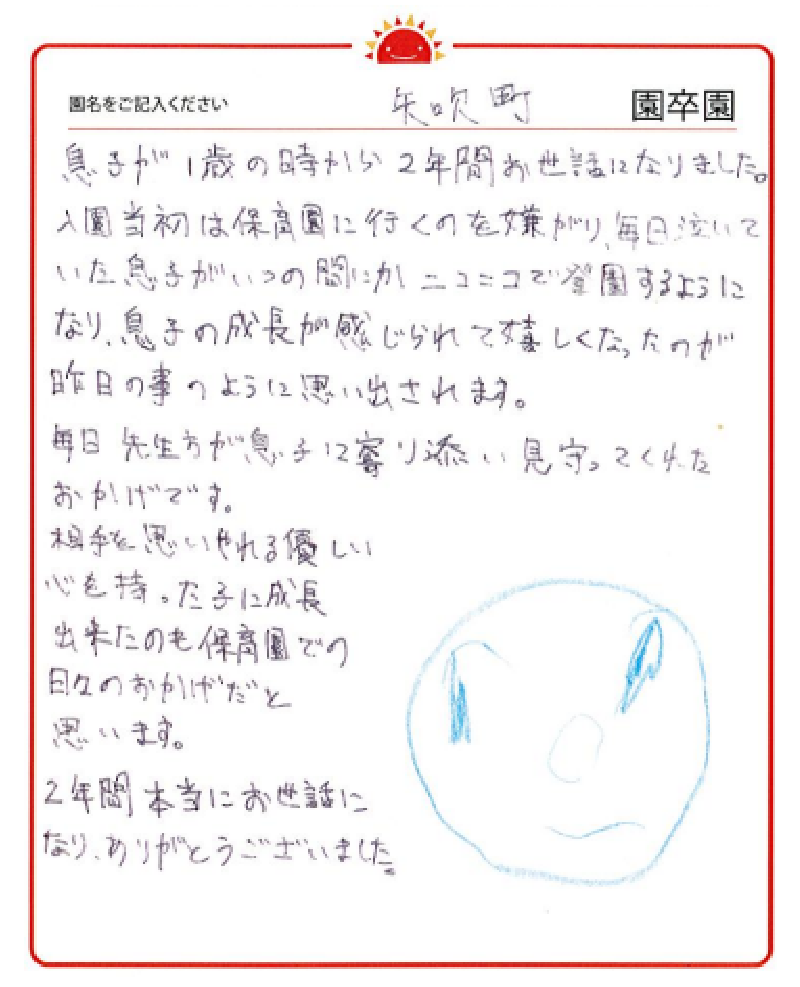 園名をご記入ください 矢吹町 園卒園
息子が1歳の時から2年間お世話になりました。
入園当初は保育園に行くのを嫌がり、毎日泣いて
いた息子がいつの間にかニコニコで登園するように
なり、息子の成長が感じられて嬉しくなったのが
昨日の事のように思い出されます。
毎日先生方が息子に寄り添い見守ってくれた
おかげです。
相手を思いやれる優しい
心を持った子に成長
出来たのも保育園での
日々のおかげだと
思います。
2年間本当にお世話に
なり、ありがとうございました。